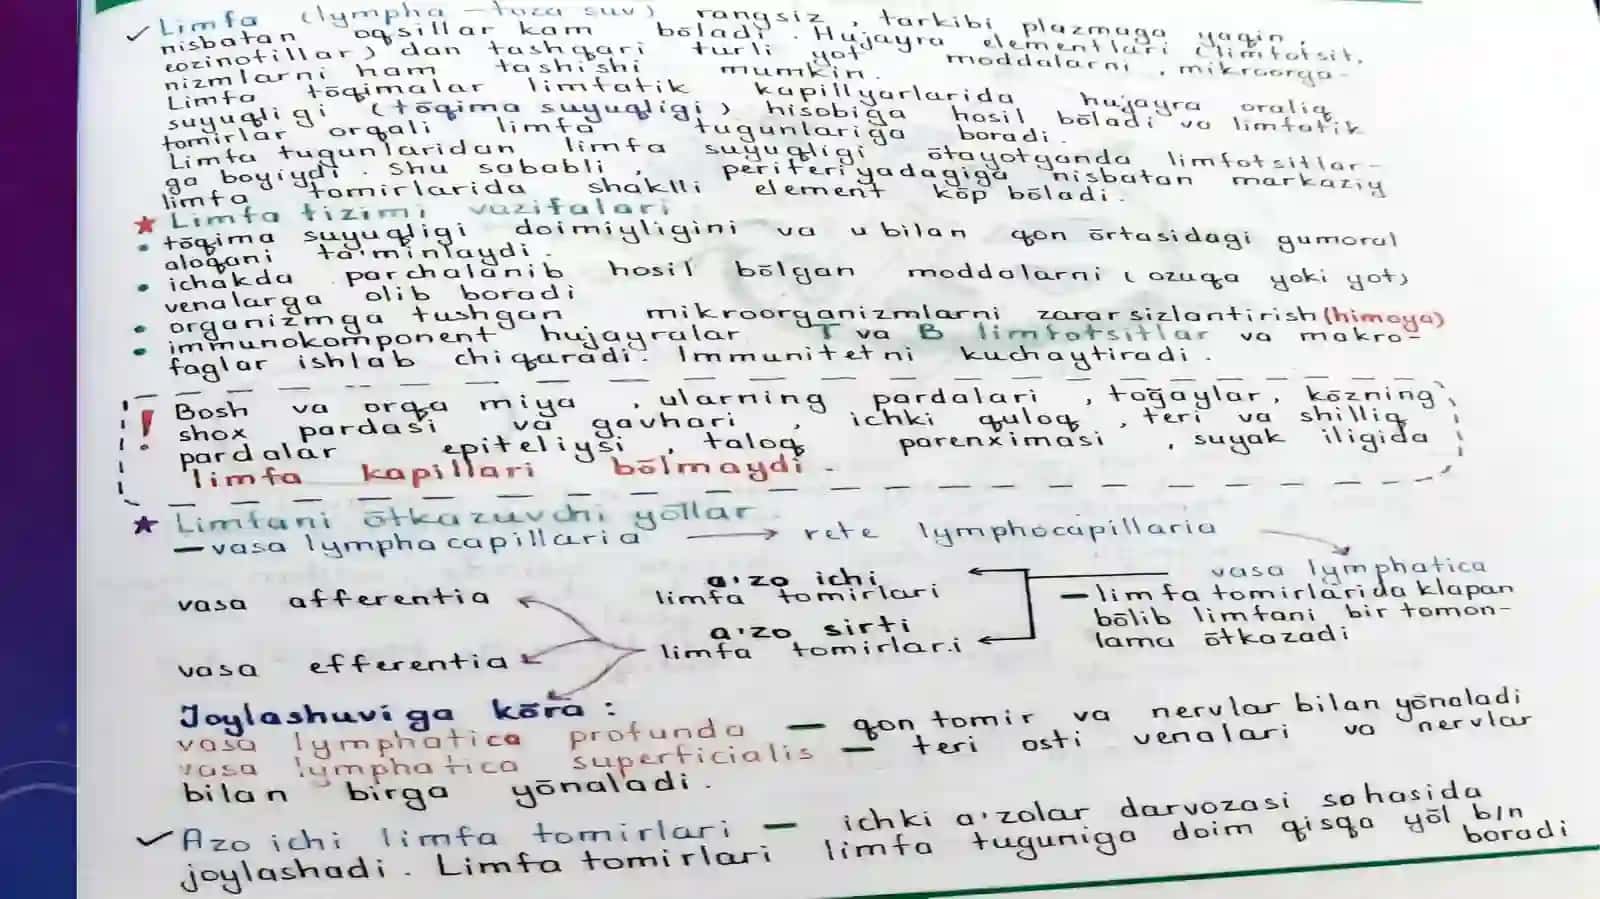 ✓ Limfa (lympha – toza suv) rangsiz, tarkibi plazmaga yaqin,
nisbatan oqsillar kam bōladi. Hujayra elementlari (limfotsit,
eozinofillar) dan tashqari turli yot moddalarni, mikroorga-
nizmlarni ham tashishi mumkin.
Limfa tōqimalar limfatik kapillyarlarida hujayra oraliq
suyuqligi (tōqima suyuqligi) hisobiga hosil bōladi va limfatik
tomirlar orqali limfa tugunlariga boradi.
Limfa tugunlaridan limfa suyuqligi ōtayotganda limfotsitlar-
ga boyiydi. Shu sababli, periferiyadagiga nisbatan markaziy
limfa tomirlarida shaklli element kōp bōladi.
★ Limfa tizimi vazifalari
• tōqima suyuqligi doimiyligini va u bilan qon ōrtasidagi gumoral
aloqani ta'minlaydi.
• ichakda parchalanib hosil bōlgan moddalarni (ozuqa yoki yot)
venalarga olib boradi
• organizmga tushgan mikroorganizmlarni zararsizlantirish (himoya)
• immunokomponent hujayralar T va B limfotsitlar va makro-
faglar ishlab chiqaradi. Immunitetni kuchaytiradi.
! Bosh va orqa miya, ularning pardalari, toğaylar, kōzning
shox pardasi va gavhari, ichki quloq, teri va shilliq
pardalar epiteliysi, taloq parenximasi, suyak iligida
limfa kapillari bōlmaydi.
★ Limfani ōtkazuvchi yōllar.
– vasa lymphacapillaria → rete lymphocapillaria
vasa lymphatica
– limfa tomirlarida klapan
bōlib limfani bir tomon-
lama ōtkazadi
a'zo ichi
limfa tomirlari
a'zo sirti
limfa tomirlari
vasa afferentia
vasa efferentia
Joylashuviga kōra:
vasa lymphatica profunda – qon tomir va nervlar bilan yōnaladi
vasa lymphatica superficialis – teri osti venalari va nervlar
bilan birga yōnaladi.
✓ Azo ichi limfa tomirlari – ichki a'zolar darvozasi sohasida
joylashadi. Limfa tomirlari limfa tuguniga doim qisqa yōl b/n
boradi